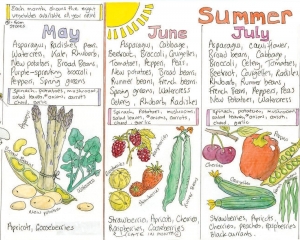 Each month, discover five super
vegetables available all year round!
Summer
May
Asparagus, Radishes, peas,
Watercress, Main Rhubarb,
New potatoes, Broad Beans,
Purple-sprouting broccoli,
Peppers, Spring greens
Spinach, potatoes, mushrooms,
salad leaves, onions, carrots
chard, garlic
Apricots, Gooseberries
June
Asparagus, Cabbage,
Beetroot, Broccoli, Courgettes,
Tomatoes, Peppers, Peas,
New potatoes, Broad beans,
Runner beans, French beans,
Spring greens, Watercress
Celery, Rhubarb, Radishes
Spinach, potatoes, mushrooms,
salad leaves, onions, carrots,
chard, garlic
Strawberries, Apricots, Cherries,
Raspberries, Gooseberries
July
Asparagus, Cauliflower,
Broad beans, Cabbage,
Broccoli, Celery, Tomatoes,
Beetroot, Courgettes, Radishes
Runner beans, Rhubarb,
French beans, Peppers, Peas
New Potatoes, Watercress
Spinach, potatoes, mushrooms,
salad leaves, onions, carrots,
chard, garlic
Cherries
Strawberries, Apricots,
Cherries, peaches, Raspberries
Blackcurrants